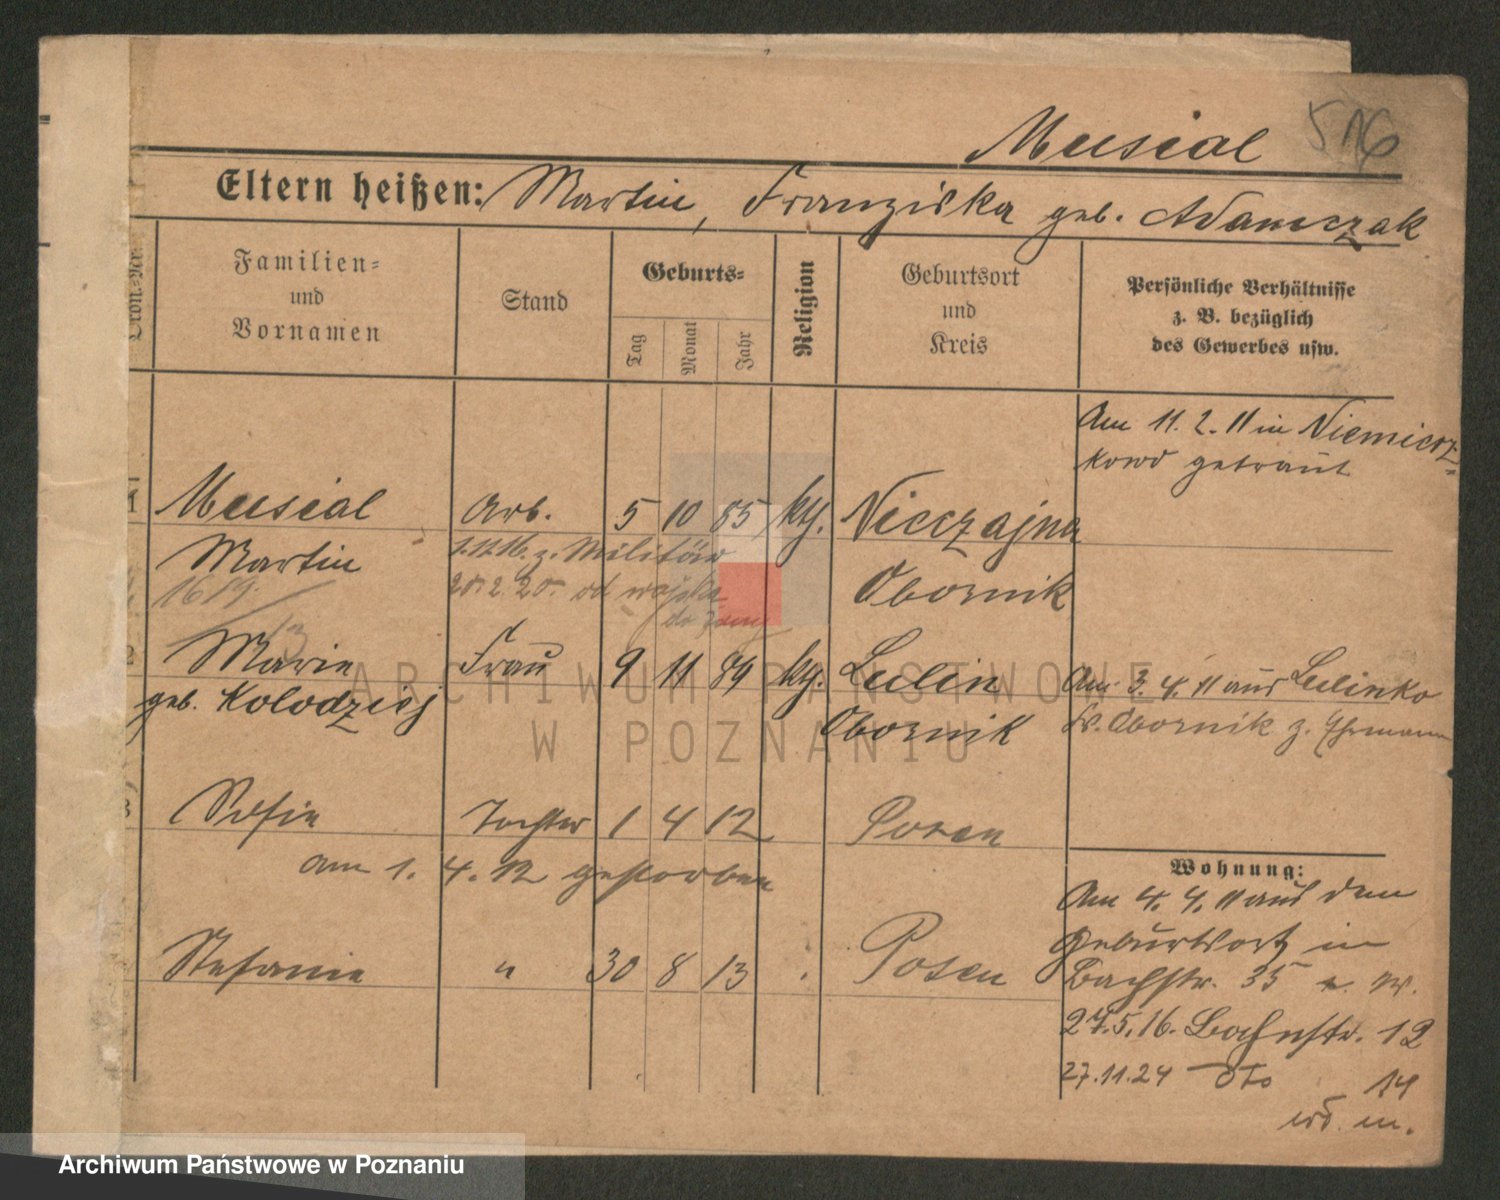 Musial 516
Eltern heißen: Martin, Franziska geb. Adamczak
Ordn.-Nr.
Familien-
und
Vornamen
Stand
Geburts-
Tag
Monat
Jahr
Religion
Geburtsort
und
Kreis
Persönliche Verhältnisse
z. B. bezüglich
des Gewerbes usw.
Am 11. 2. 11 in Niemiecz-
kowo getraut
1 Musial Arb. 5 10 85 kth. Niecczajna
Martin z. Militär Obornik
1619. 20. 2. 20. od wojska
do żony
2 Marie Frau 9 11 89 kth. Lulin Am 3. 4. 11 aus Lulinko
geb. Kolodziej Obornik Kr. Obornik z. Ehemann
3 Sofie Tochter 1 4 12 Posen
am 1. 4. 12 gestorben
Wohnung:
Am 4. 4. 11 aus dem
Geburtsort in
Stefanie " 30 8 13 Posen
Bachstr. 35 w.
27.5.16. Bachstr. 12
27.11.24 dto 14
ARCHIWUM PAŃSTWOWE
W POZNANIU
Archiwum Państwowe w Poznaniu